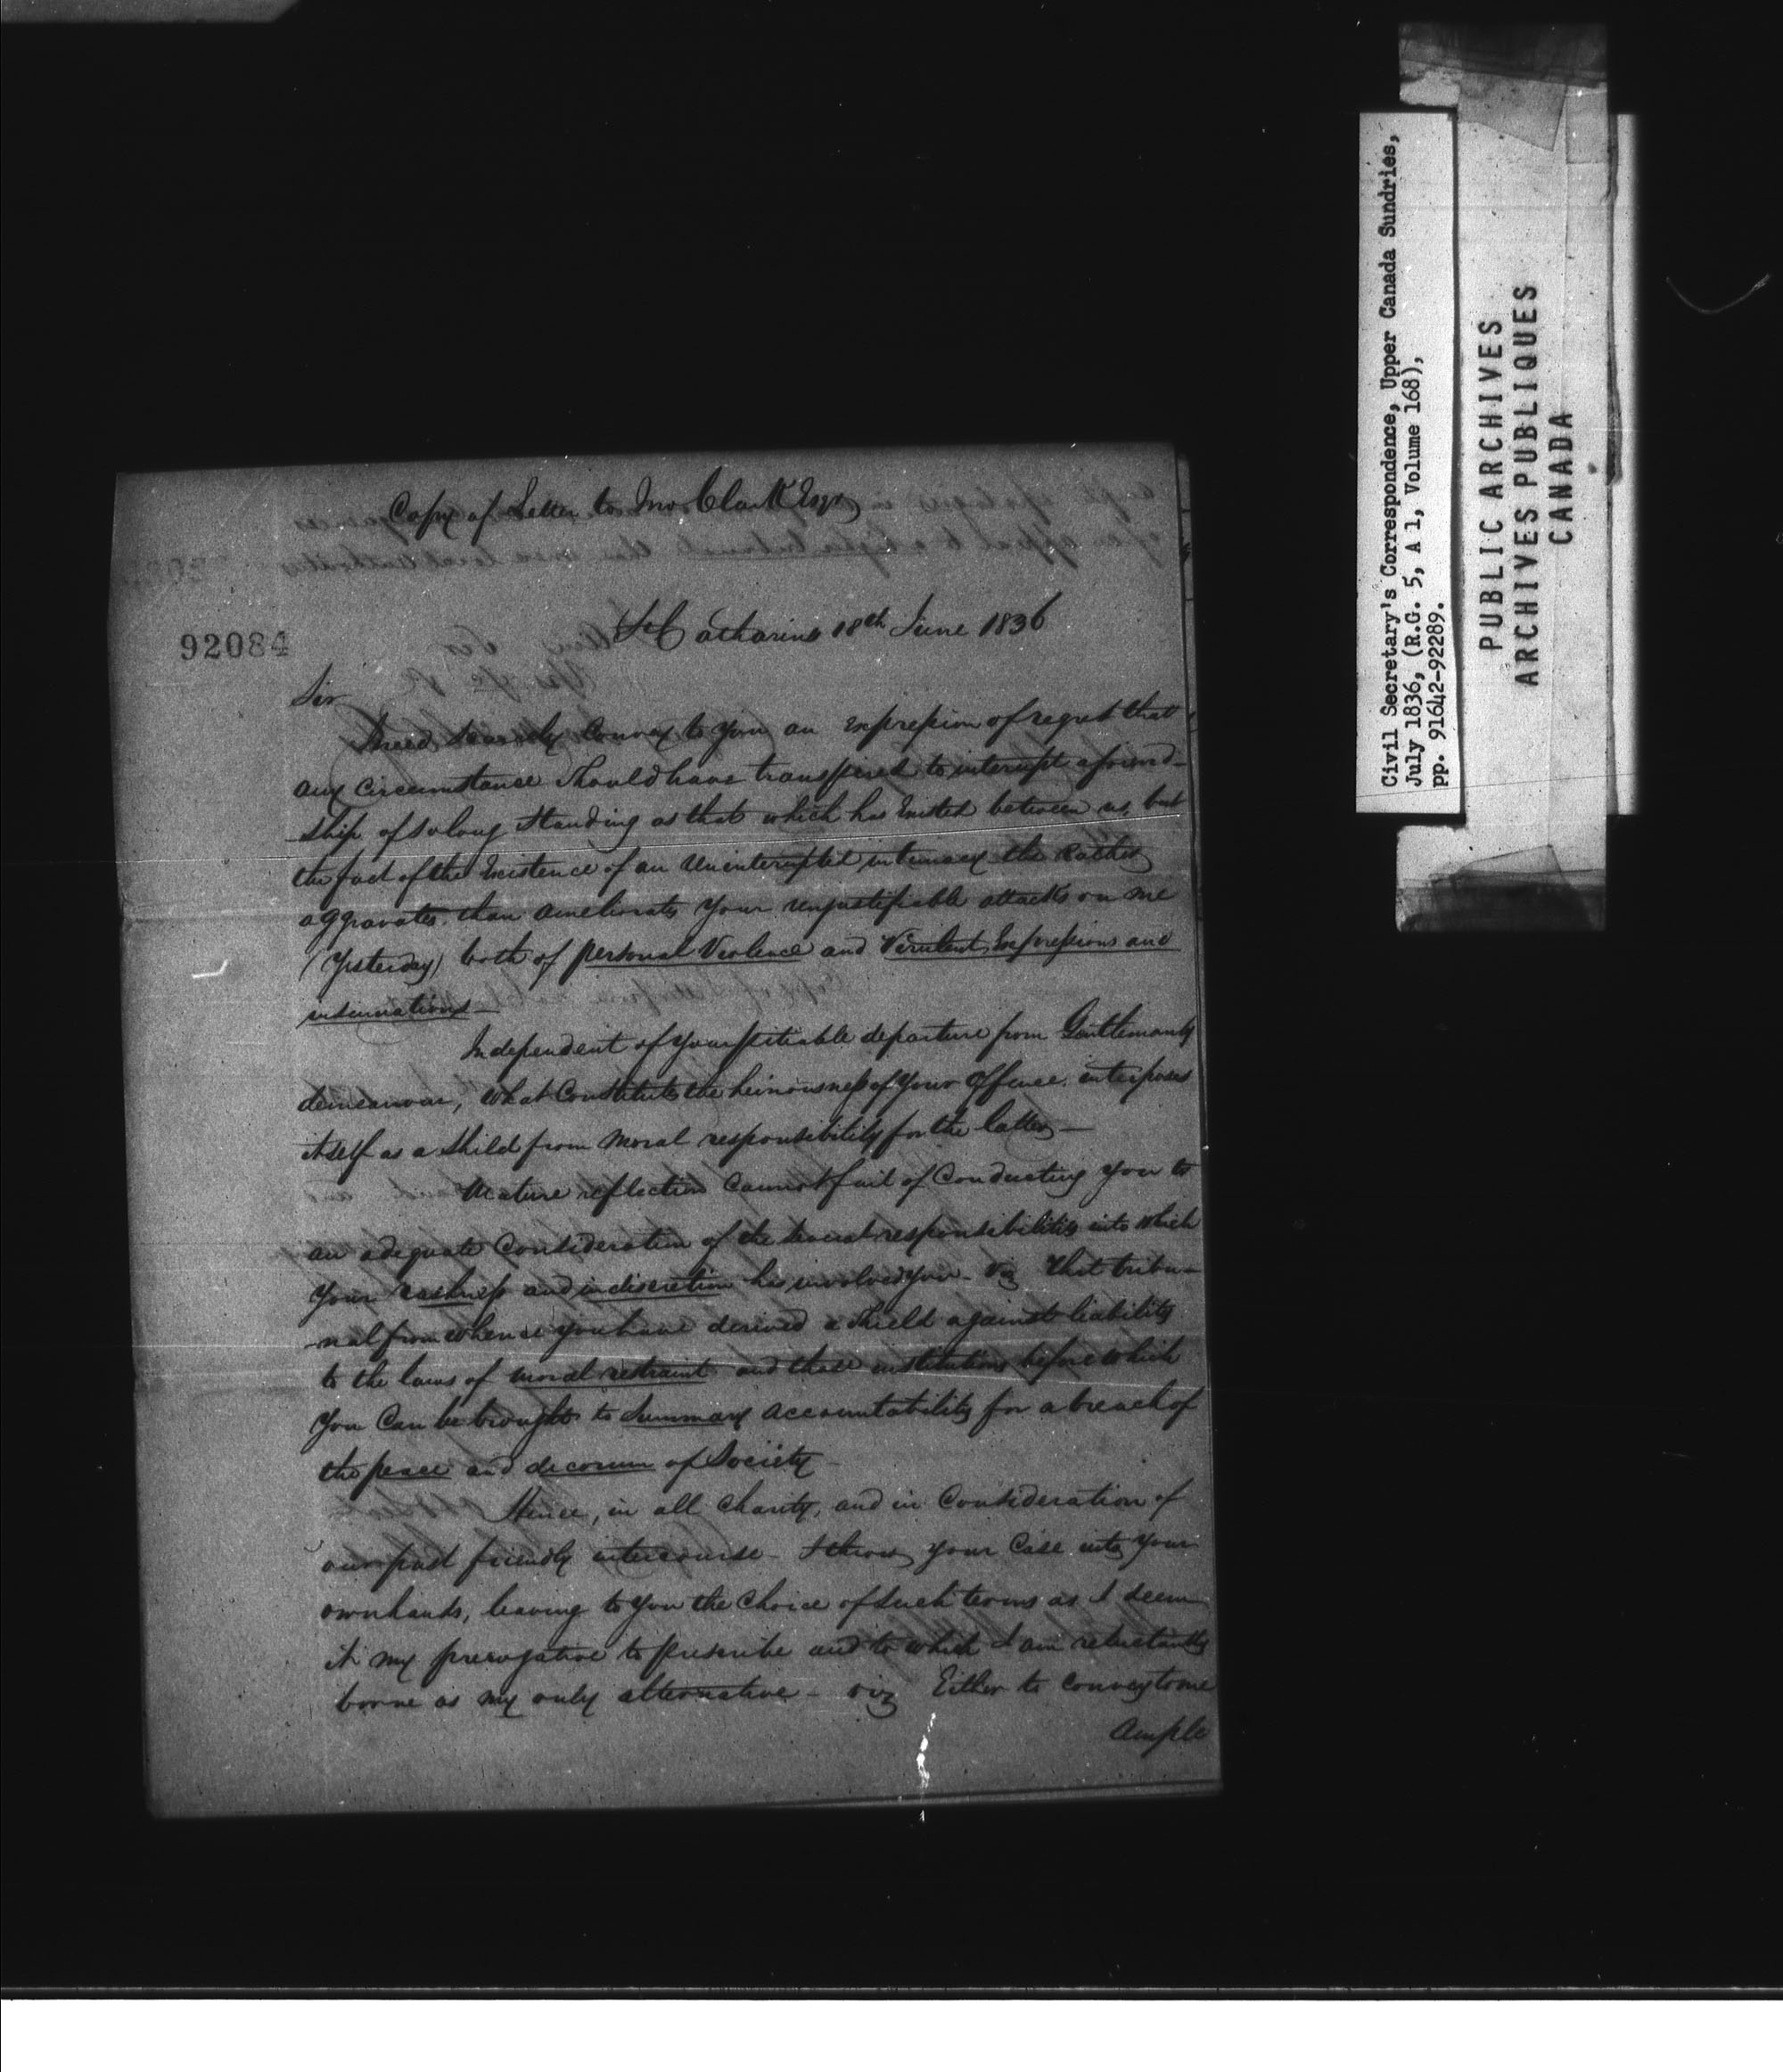 Copy of Letter to Jno Clark Esqr
St Catharines 18th June 1836
92084
Sir
I need scarcely Convey to you an expression of regret that
any Circumstance Should have transpired to interrupt a friend-
-ship, of so long Standing as that which has existed between us, but
the fact of the Existence of an Uninterrupted intimacy the Rather
aggravates than ameliorates your unjustifiable attacks on me
(Yesterday) both of personal Violence and Virulent Expressions and
insinuations —
Independent of your pitiable departure from Gentlemanly
demeanour, What Constitutes the heinousness of Your Offence interposes
itself as a Shild from Moral responsibility for the latter —
Mature reflection Cannot fail of Conducting you to
an adequate Consideration of the several responsibilities into which
Your rashness and indiscretion has involved you - viz That tribu-
-nal from whence you have derived a Shield against liability
to the laws of moral restraint and those institutions before which
You Can be brought to Summary accountability for a breach of
the peace and decorum of Society -
Hence, in all Charity, and in Consideration of
our past friendly intercourse - I throw your Case into your
own hands, leaving to you the Choice of Such terms as I deem
it my prerogative to prescribe and to which I am reluctantly
borne as my only alternative - viz Either to convey to me
Ample
Civil Secretary's Correspondence, Upper Canada Sundries,
July 1836, (R.G. 5, A 1, Volume 168),
pp. 91642-92289.
PUBLIC ARCHIVES
ARCHIVES PUBLIQUES
CANADA